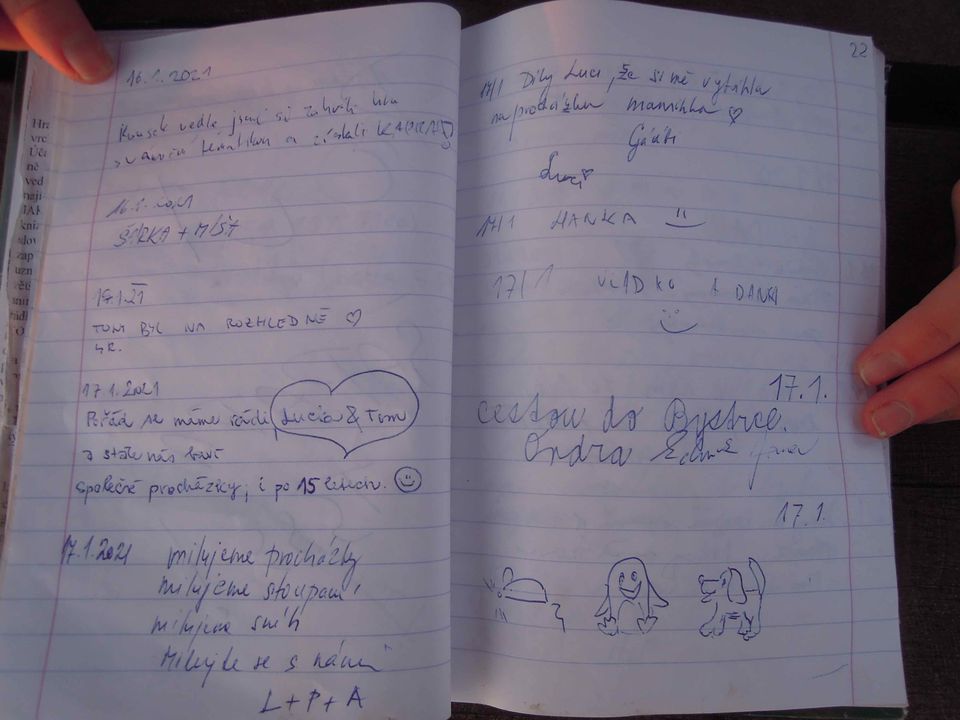 16.1.2021
Kousek vedle jsme si zahráli hru
s a získali KAPRA
16.1.2021
ŠÁRKA + MÍŠA
17.1.21
TOM BYL NA ROZHLEDNĚ ♡
17.1.2021
Pořád se máme rádi, Lucia & Tom
a stále nás baví
společné procházky, i po 15 letech. ☺
17.1.2021 milujeme procházky
milujeme stoupání
milujeme sníh
Milujte se s námi
L+P+A
22
17/1 Díky Luci, že si mě vytáhla
na procházku maminka ♡
Luci♡
17/1 HANKA
17/1 VLADKO A DANA
17.1.
cestou do Bystrce.
Ondra
17.1.